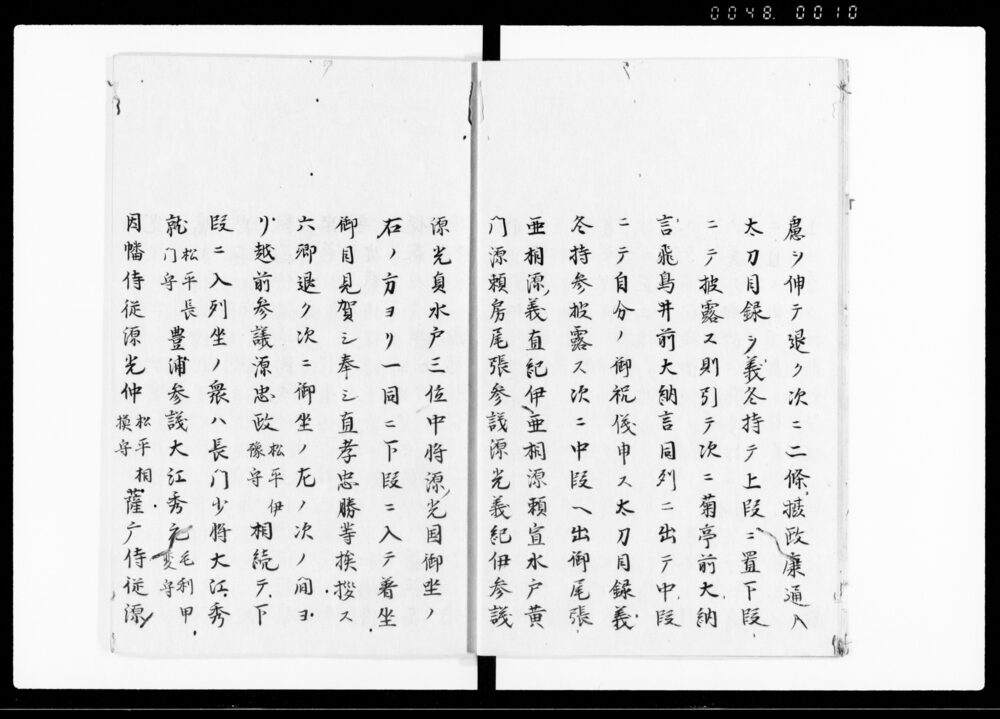 0048. 0010
慮シ伸テ退ク次ニ二條摂政康通入
太刀目録ヲ義冬持テ上段ニ置下段
ニテ披露ス則引テ次ニ菊亭前大納
言飛鳥井前大納言同列ニ出テ中段
ニテ自分ノ御祝儀申ス太刀目録義
冬持参披露ス次ニ中段ヘ出御尾張
亜相源義直紀伊亜相源頼宣水戸黄
門源頼房尾張参議源光義紀伊参議
源光貞水戸三位中将源光国御坐ノ
右ノ方ヨリ一同ニ下段ニ入テ着坐
御目見賀シ奉シ直孝忠勝等挨拶ス
六卿退ク次ニ御坐ノ左ノ次ノ間ヨ
リ越前参議源忠政松平伊豫守相続テ下
段ニ入列坐ノ衆ハ長門少将大江秀
就松平長門守豊浦参議大江秀元毛利甲斐守
因幡侍従源光仲松平相摸守薩广侍従源